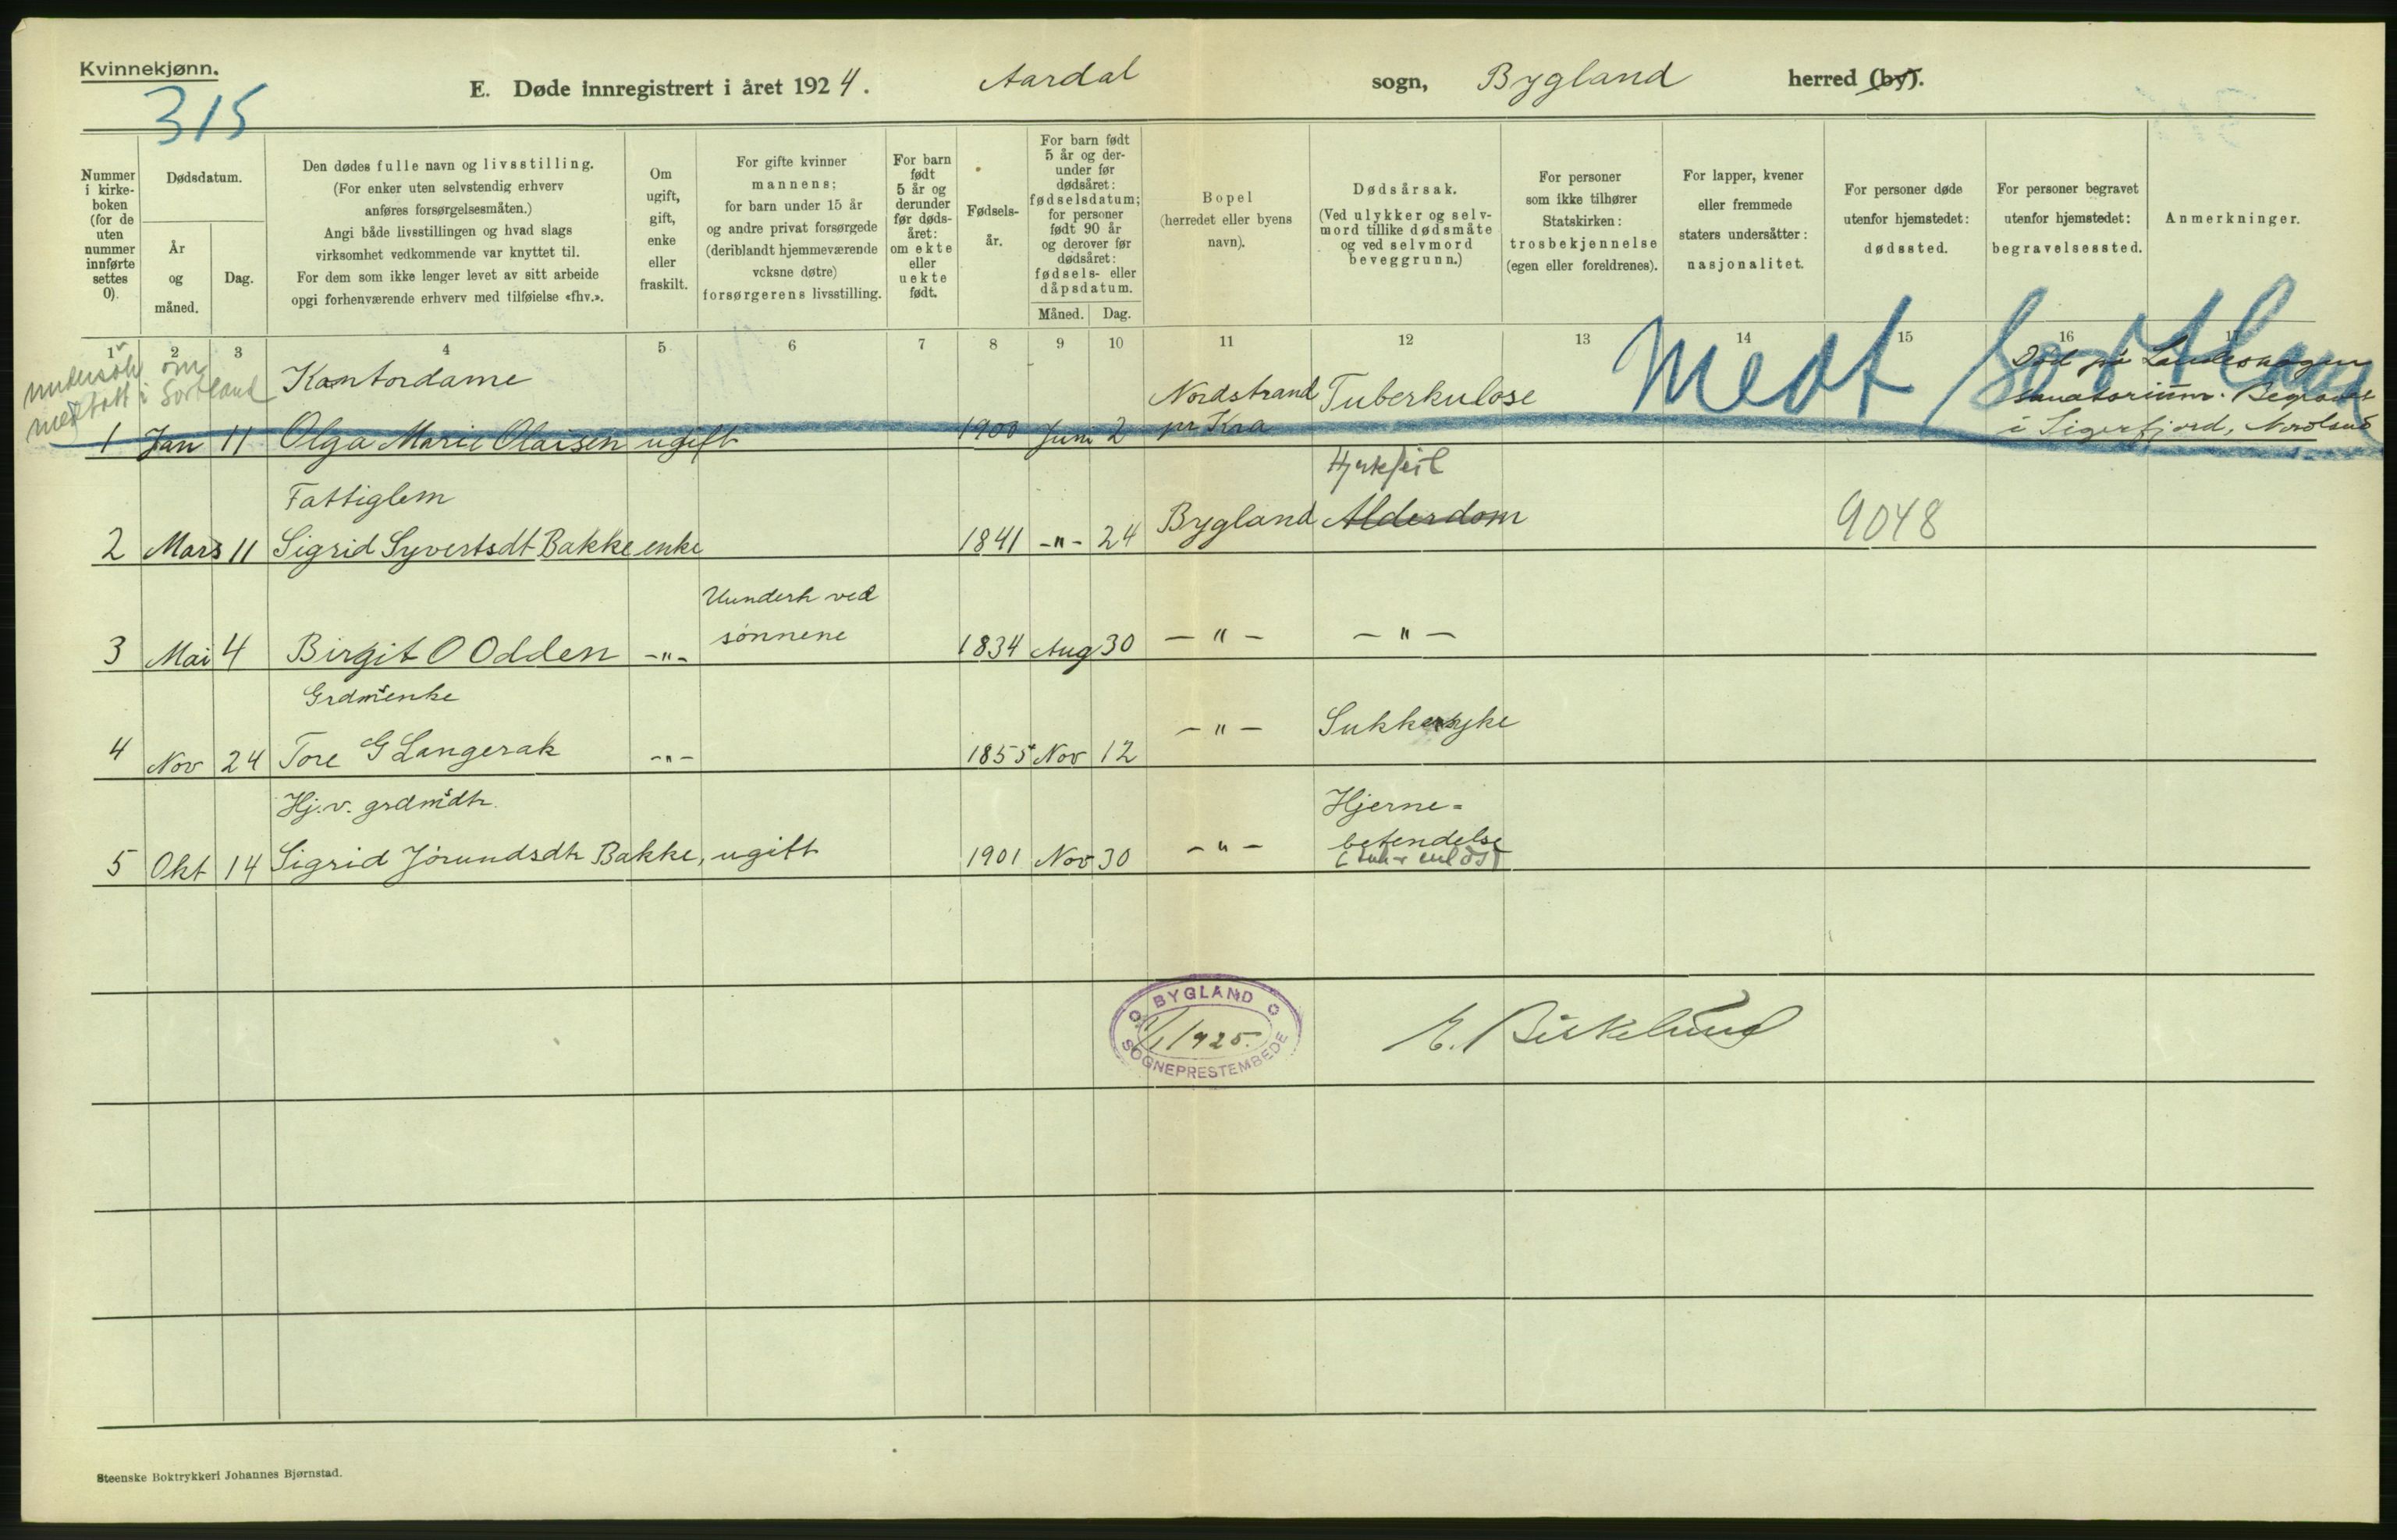 Kvinnekjønn.
315
E. Døde innregistrert i året 1924. Aardal sogn, Bygland herred (by).
Nummer i kirke-boken (for de uten nummer innførte settes 0).
Dødsdatum.
År og måned.
Dag.
Den dødes fulle navn og livsstilling.
(For enker uten selvstendig erhverv
anføres forsørgelsesmåten.)
Angi både livsstillingen og hvad slags
virksomhet vedkommende var knyttet til.
For dem som ikke lenger levet av sitt arbeide
opgi forhenværende erhverv med tilføielse «fhv.».
Om ugift, gift, enke eller fraskilt.
For gifte kvinner
mannens;
for barn under 15 år
og andre privat forsørgede
(deriblandt hjemmeværende
voksne døtre)
forsørgerens livsstilling.
For barn født 5 år og derunder før døds-året: om ekte eller uekte født.
Fødsels-år.
For barn født
5 år og der-
under før
dødsåret:
fødselsdatum;
for personer
født 90 år
og derover før
dødsåret:
fødsels- eller
dåpsdatum.
Måned. Dag.
Bopel
(herredet eller byens
navn).
Dødsårsak.
(Ved ulykker og selv-
mord tillike dødsmåte
og ved selvmord
beveggrunn.)
For personer
som ikke tilhører
Statskirken:
trosbekjennelse
(egen eller foreldrenes).
For lapper, kvener
eller fremmede
staters undersåtter:
nasjonalitet.
For personer døde
utenfor hjemstedet:
dødssted.
For personer begravet
utenfor hjemstedet:
begravelsessted.
Anmerkninger.
1 2 3 4 5 6 7 8 9 10 11 12 13 14 15 16 17
om
medtatt i Sortland
Kontordame
Nordstrand Tuberkulose
Medt Sortland
Død på Landeskogen
sanatorium. Begravet
i Sigerfjord, Nordland
1 Jan 11 Olga Marie Olaisen ugift 1900 Juni 2 pr Kra
Hjertefeil
Fattiglem
2 Mars 11 Sigrid Syvertsdt Bakke enke 1841 -"- 24 Bygland Alderdom 9048
Underh ved
sønnene
3 Mai 4 Birgit O Odden -"- 1834 Aug 30 -"- -"-
Grdmsenke
4 Nov 24 Tore G Langerak -"- 1855 Nov 12 -"- Sukkersyke
Hj. v. grdmsdtr.
Hjerne-
betendelse
5 Okt 14 Sigrid Jórundsdtr Bakke, ugift 1901 Nov 30 -"-
BYGLAND
1/1 1925.
SOGNEPRESTEMBEDE
E. Birkelund
Steenske Boktrykkeri Johannes Bjørnstad.